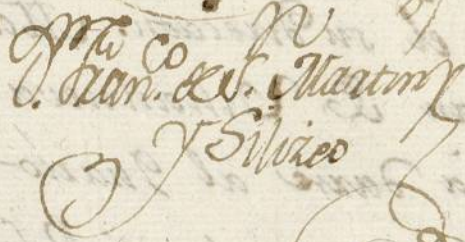 D. Fran.co de S. Martin
y Siliceo